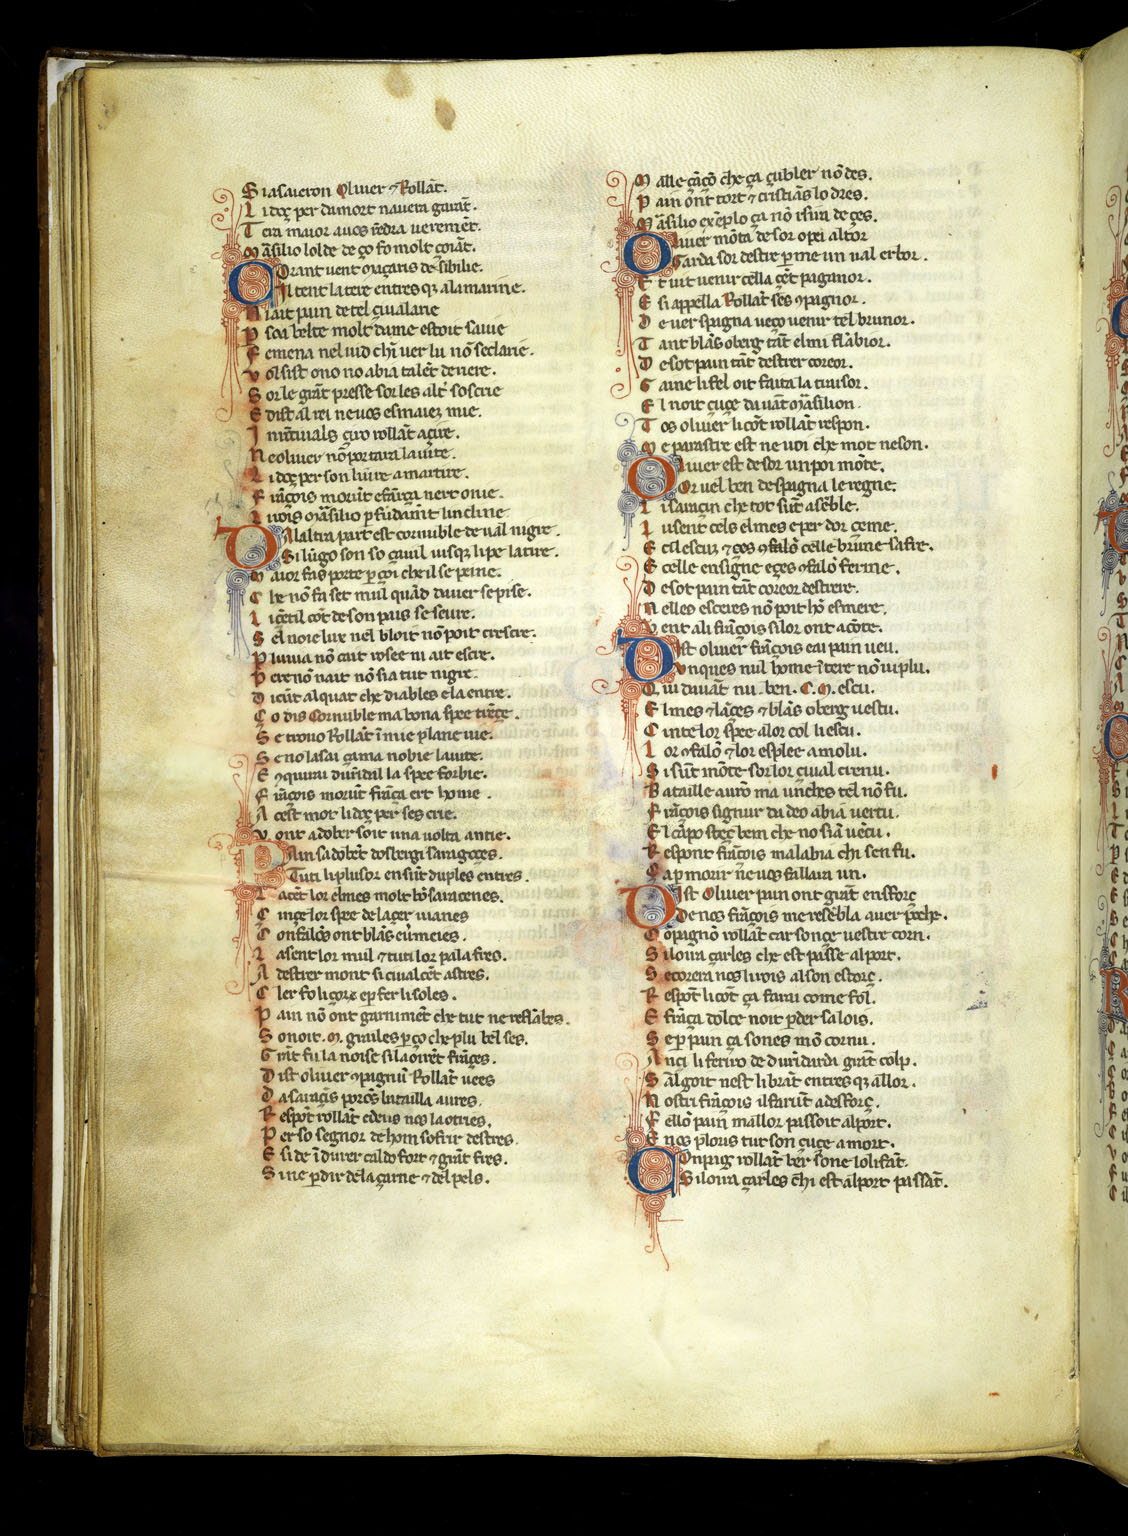 S iasaueron Oliuer ⁊ Rollãt.
L i doç per da mort nauera garãt.
T era maior auos rẽdra ueremẽt.
M ãsilio lolde de ço fo molt çoiãt.
C Orant uent Marçaris de Sibilie.
Cil tent la tere entres qᷓ alamarine.
N iait pain de tel çiualarie
P soa belte molt dame estoit sauie
F emena nel uid chi uer lu nõ seclarie.
V olsist o no no abia talẽt de rere.
S or le grãt presse sor les altr̃ soscrie
E dist al rei ne uos esmaiez mie.
I n rũciuals çiro rollãt açire.
N e oliuer nõ portara lauite.
L i doç per son liure a martire.
F rãçois morũt e frãça nert onie.
L iuois Mãsilio pfudamẽt lin cline
D Alaltra part est cornuble de ual nigre.
Si lũgo son so çauil iusqᷓ li pe la tire.
M aior fas porte p çoi che il se peine.
C he nõ fa set mul quãd dauer se prise.
L i çẽtil cõt de son pais se seure.
S el noie lux nel bloit nõ poit crescre.
P luuia nõ cait rosee ni ait escre.
P ere nõ nait nõ sia tut nigre.
D icũt alquãt che diables e la entre.
C o dis Cornuble ma bona spee trẽçe.
S e trouo Rollãt ĩ mie plane uie.
S e no lasai çama no bie lauite.
E ꝯquirai durĩdal la spee forbie.
F rãçois morũt frãça ert honie.
A cest mot li doç per ses crie.
V ont adober soit una uolta antie.
P Ain sadobẽt dosbergi saragoçes.
Tuti li plusor en sũt duples entres.
L acẽt lor elmes molt bõ saracenes.
C inçe lor spee de laçer uianes
C onfalõs ont blãs e ũmeies.
L asent lor mul ⁊ tuti lor palafres.
A destrer mont si ciualcẽt astres.
C ler fo li çorz e per fer li soles.
P ain nõ ont garnimẽt che tut ne reflãbes.
S onoit .M. grailes p ço che plu bel ses.
G rãt fu la noise si la oirẽt frãçes.
D ist oliuer ꝯpagnũ Rollãt uees
D a saraçis porõs bataila aures.
R espõt rollãt e deus nos la otries.
P er so segnor de hom sofrir destres.
E si de ĩdurer caldo fort ⁊ grãt fres.
S i ne pdir de la çarne ⁊ del pels.
M alle cãçõ che ça çubler nõ des.
P ain ont tort ⁊ cristiãs lo dres.
M ãsilio exẽplo ça nõ isira de çes.
O Liuer mõta desor opei altor
Garda sor destre p me un ual erbor.
E t uit uenir cella çẽt paganor.
E si appella Rollãt ses ꝯpagnor.
D e uer spagna ueço uenir tel brunor.
T ant blãs oberg tãt elmi flãbior.
D e sot pain tãt destrer coreor.
G aine li fel oit faita la traisor.
E l noit çuçe dauãt Mãsilion.
T os oliuer li cõt rollãt respon.
M e parastre est ne uoi che mot ne son.
O Liuer est desor un poi mõte.
Or uel ben de spagna le regne.
L i saraçin che tot sũt asẽble.
L usent cels elmes e per dor çeme.
E cels escuz ⁊ ços ꝯfalõ celle brune safre.
E celle ensigne eçes ꝯfalõ ferme.
D e sot pain tãt coreor destrere.
N elles esceres nõ poit hõ esmere.
V ent ali frãçois si lor ont acõte.
D ist oliuer frãçois eai pain ueu.
Vnques nul home ĩ tere nõ ui plu.
Q ui dauãt nu. ben .C. M. escu.
E lmes ⁊ lãçes ⁊ blãs oberg uestu.
C inte lor spee alor col li escu.
L or ꝯfalõ ⁊ lor esplee amolu.
S i sũt mõte sor lor çiual crenu.
B ataille aurõ ma uncles tel nõ fu.
F rãçois signur da deo abia uertu.
E l cãpo steç bem che no siã uẽcu.
R espont frãçois mal abia chi sen fu.
C a p morir ne uos fallira un.
D ist Oliuer pain ont grãt ensforç
De nos frãçois me resẽbla auer poche.
C õpagnõ rollãt car sonçe uestre corn.
S i loira çarles che est passe al port.
S ecorera nos li rois al son estorç.
R espõt li cõt ça farai come fol.
E frãça dolce noit pder sa lois.
S e p pain ça sones mõ cornu.
A nçi li feriro de durĩdarda grãt colp.
S ãlgoit nest li brãt entres qᷓ allor.
N ostri frãçois il farũt adesforç.
F ellõ pain mallor passoit al port.
E nos ploris tut son çuçe a mort.
C Onpãg rollãt ber sone lolifãt.
Si loira çarles chi est al port passãt.